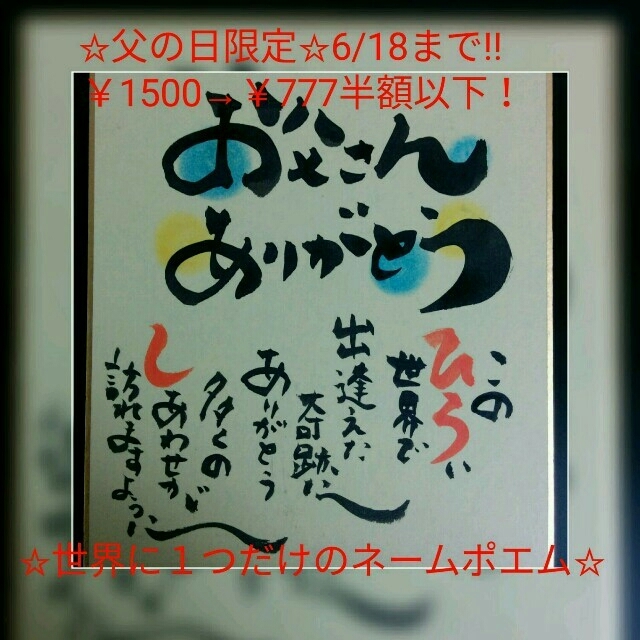 ☆父の日限定☆6/18まで!!
￥1500→￥777半額以下！
お父さん
ありがとう
この
ひろい
世界で
出逢えた
奇跡に
ありがとう
多くの
しあわせが
訪れますように
☆世界に１つだけのネームポエム☆